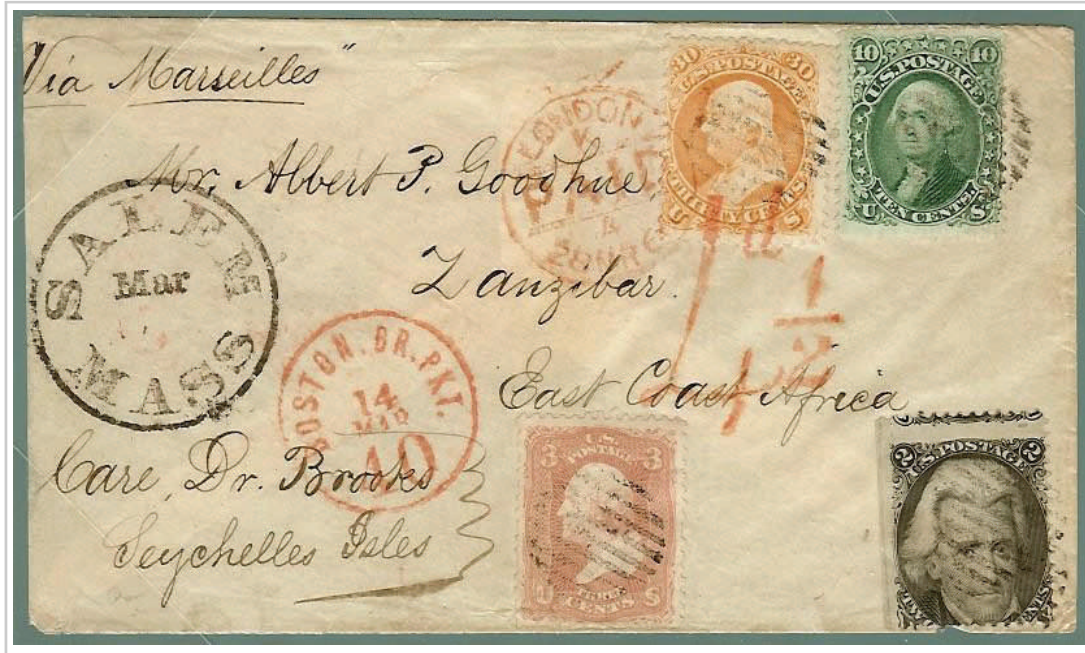 Via Marseilles"
Mr. Albert P. Goodhue
Zanzibar.
East Coast Africa
Care, Dr. Brooks
Seychelles Isles
SALEM
Mar
MASS
BOSTON. BR. PKT.
14
MAR
40
LONDON
PAID
30 30
U.S. POSTAGE
THIRTY CENTS
U S
10 10
U.S. POSTAGE
TEN CENTS.
U S
1d
1/2
3 3
U.S.
POSTAGE
THREE
CENTS
U S
2 2
U.S. POSTAGE
CENTS